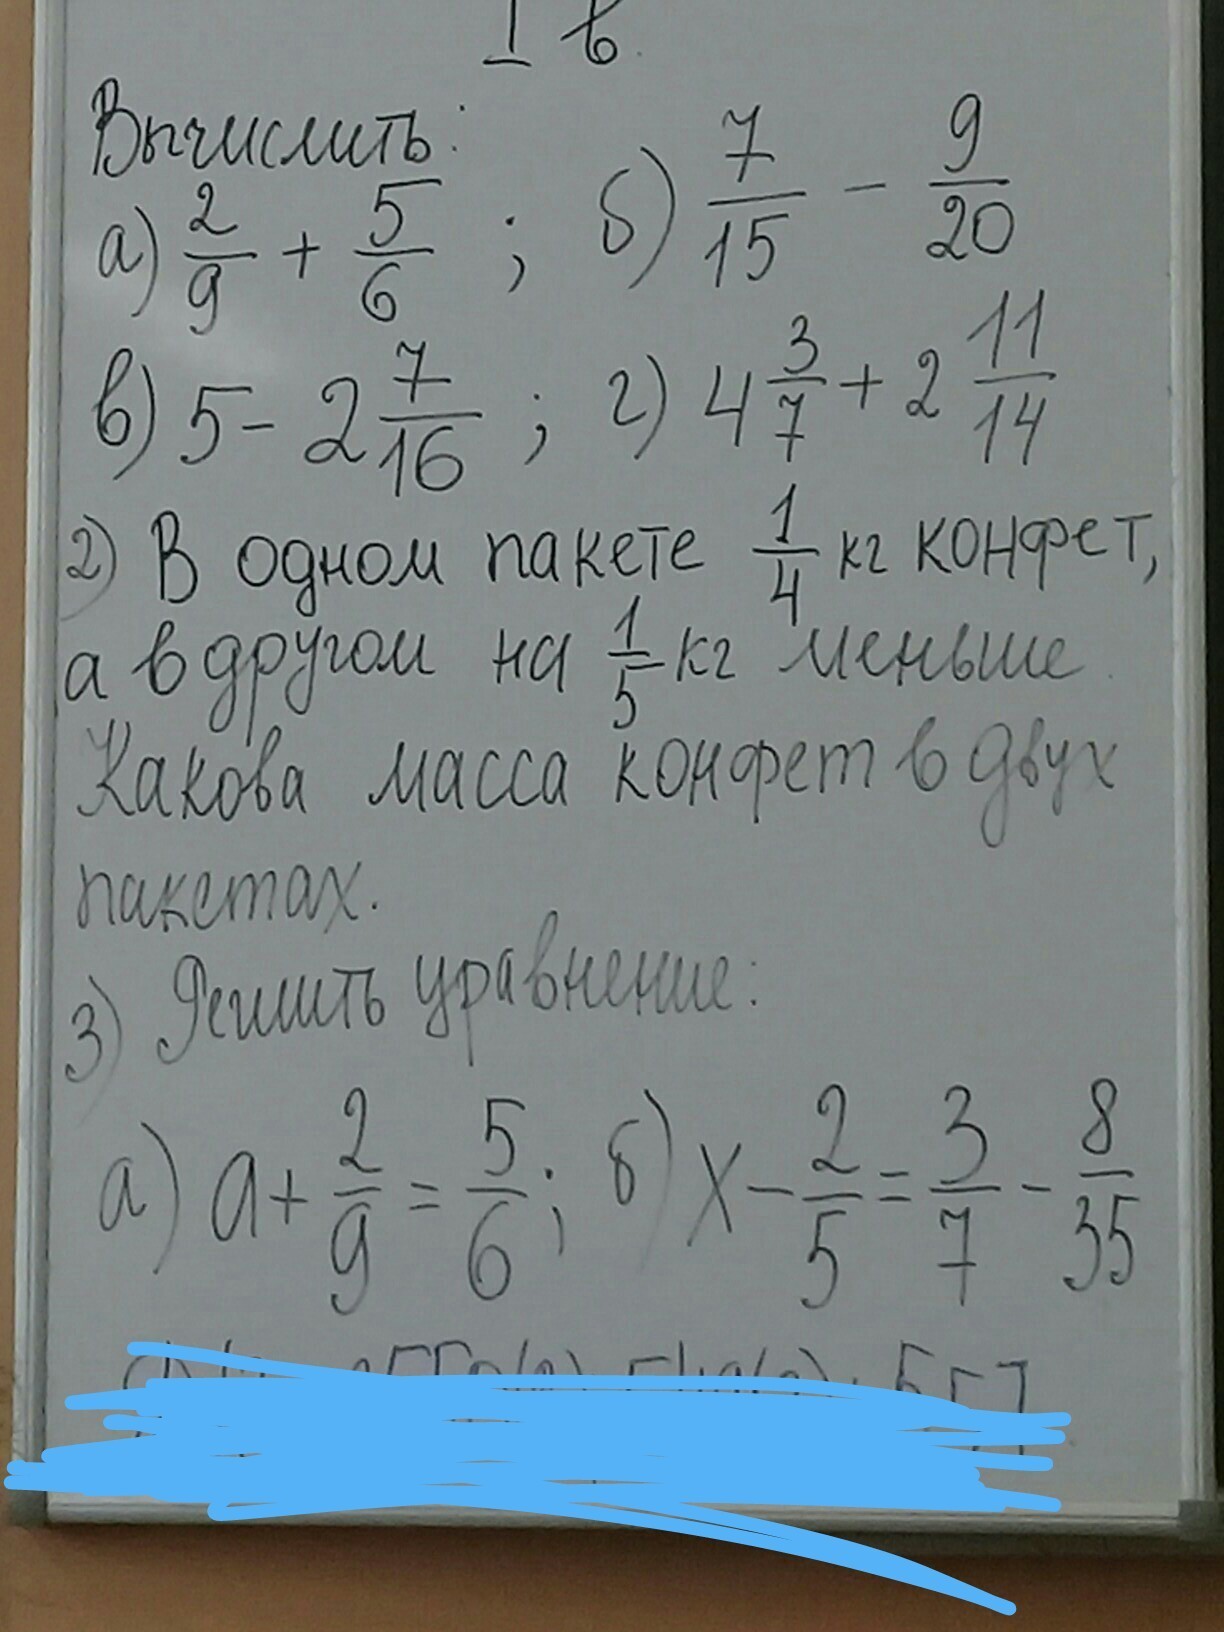 I в.
Вычислить:
а) 2/9 + 5/6 ; б) 7/15 - 9/20
в) 5 - 2 7/16 ; г) 4 3/7 + 2 11/14
2) В одном пакете 1/4 кг конфет,
а в другом на 1/5 кг меньше.
Какова масса конфет в двух
пакетах.
3) Решить уравнение:
а) a + 2/9 = 5/6 ; б) x - 2/5 = 3/7 - 8/35